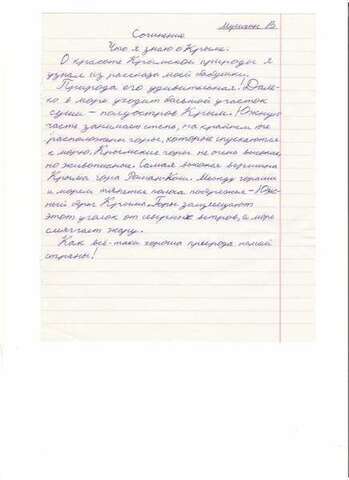 Мужихин В
Сочинение
Что я знаю о Крыме.
О красоте Крымской природы я
узнал из рассказа моей бабушки.
Природа его удивительная! Дале-
ко в море уходит большой участок
суши – полуостров Крым! Южную
часть занимает степь, на крайнем юге
расположены горы, которые спускаются
к морю. Крымские горы не очень высокие,
но живописные. Самая высокая вершина
Крыма гора Роман-Кош. Между горами
и морем тянется полоса побережья – Юж-
ный берег Крыма. Горы защищают
этот уголок от северных ветров, а море
смягчает жару.
Как всё-таки хороша природа нашей
страны!